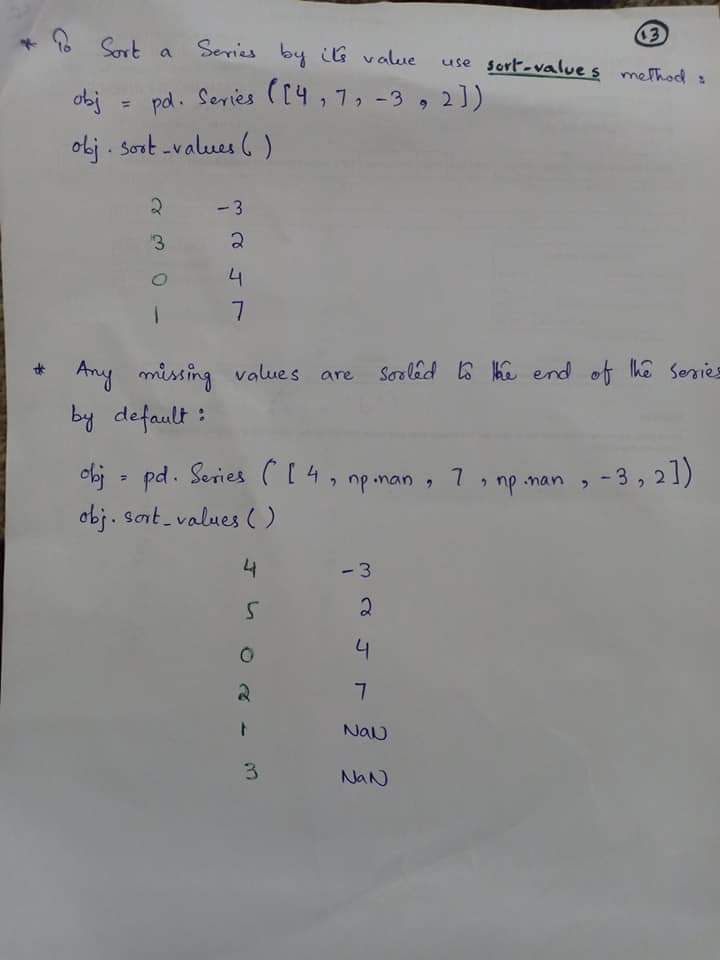 13
* To Sort a Series by its value use sort-values method:
obj = pd. Series ([4, 7, -3, 2])
obj. sort_values( )
2 -3
3 2
0 4
1 7
* Any missing values are sorted to the end of the series
by default :
obj = pd. Series ([4, np.nan, 7, np.nan, -3, 2])
obj. sort_values ( )
4 -3
5 2
0 4
2 7
1 NaN
3 NaN